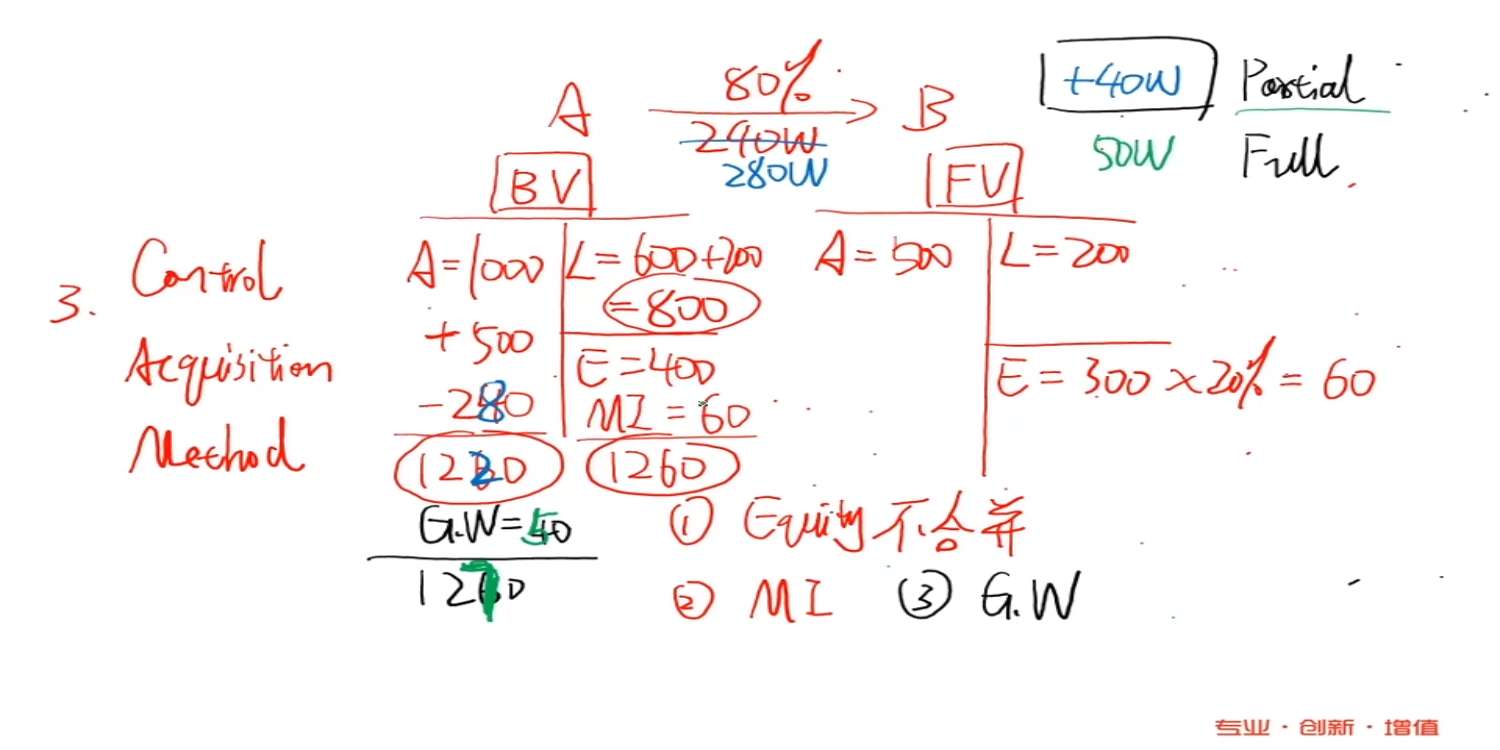 A 80% B +40W Partial
240W
280W 50W Full
BV FV
3. Control Acquisition Method
A=1000 L=600+200 A=500 L=200
=800
+500
E=400 E=300×20%=60
-280 MI=60
1220 1260
G.W=50 ① Equity不合并
1270 ② MI ③ G.W
专业·创新·增值